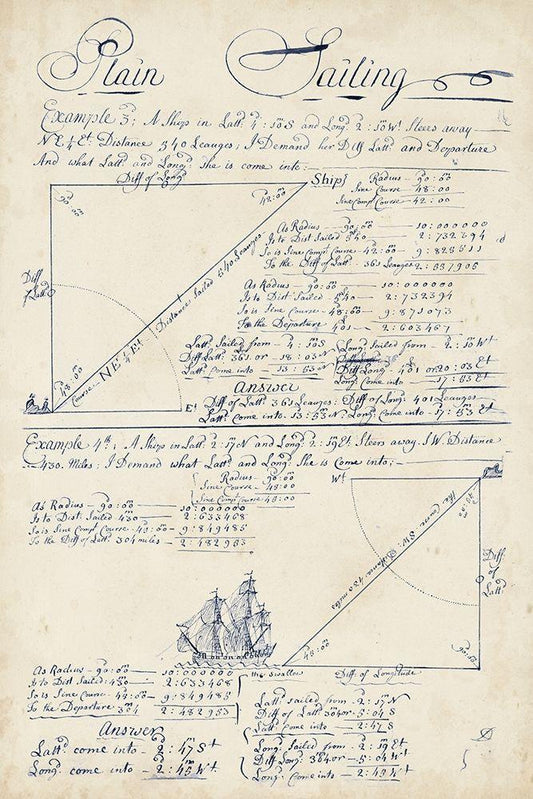 Plain Sailing
Example 3: A Ship in Lattd 4:10S and Longd 2:10Wt Steers away
NE¼Et Distance 540 Leauges: I Demand her Diff Lattd and Departure
And what Lattd and Longd She is come into:
Diff of Longd
Ship
90:00
42:00
Radius – 90:00
Sine Course – 48:00
Sine Comp Course – 42:00
Diff of Lattd
Distance Sailed 540 Leauges
Course – NE¼Et
48:00
Et
As Radius – 90:00 – 10:000000
Is to Dist Sailed 540 – 2:732394
So is Sine Compt Course – 42:00 – 9:825511
To the Diff of Lattd 361 Leauges 2:557905
As Radius – 90:00 – 10:000000
Is to Dist Sailed – 540 – 2:732394
So is Sine Course – 48:00 – 9:871073
To the Departure 401 – 2:603467
Lattd Sailed from – 4:10S
Diff Lattd 361 or – 18:03N
Lattd come into – 13:53N
Longd Sailed from – 2:10Wt
Diff Longd 401 or 20:03Et
Longd Come into – 17:53Et
Answer
Diff of Lattd 361 Leauges: Diff of Longd 401 Leauges
Lattd Come into 13:53N: Longd Come into – 17:53Et
Example 4th: A Ship in Lattd 2:17N and Longd 2:19Et Steers away SW Distance
430 Miles: I Demand what Lattd and Longd She is Come into;
Radius – 90:00
Sine Course – 45:00
Sine Compt Course 45:00
As Radius – 90:00 – 10:000000
Is to Dist Sailed 430 – 2:633468
So is Sine Compt Course – 45:00 – 9:849485
To the Diff of Lattd 304 miles – 2:482953
Wt
The Course SW Distance 430 miles
45:00
Diff of Lattd
90:00
45:00
the Swallow
Diff of Longitude
As Radius – 90:00 – 10:000000
Is to Dist Sailed 430 – 2:633468
So is Sine Course – 45:00 – 9:849485
To the Departure 304 – 2:482953
Lattd Sailed from – 2:17N
Diff of Lattd 304 or – 5:04S
Lattd Come into – 2:47S
Answer
Lattd come into – 2:47St
Longd come into – 2:45Wt
Longd Sailed from – 2:19Et
Diff Longd 304 or – 5:04Wt
Longd Come into – 2:45Wt